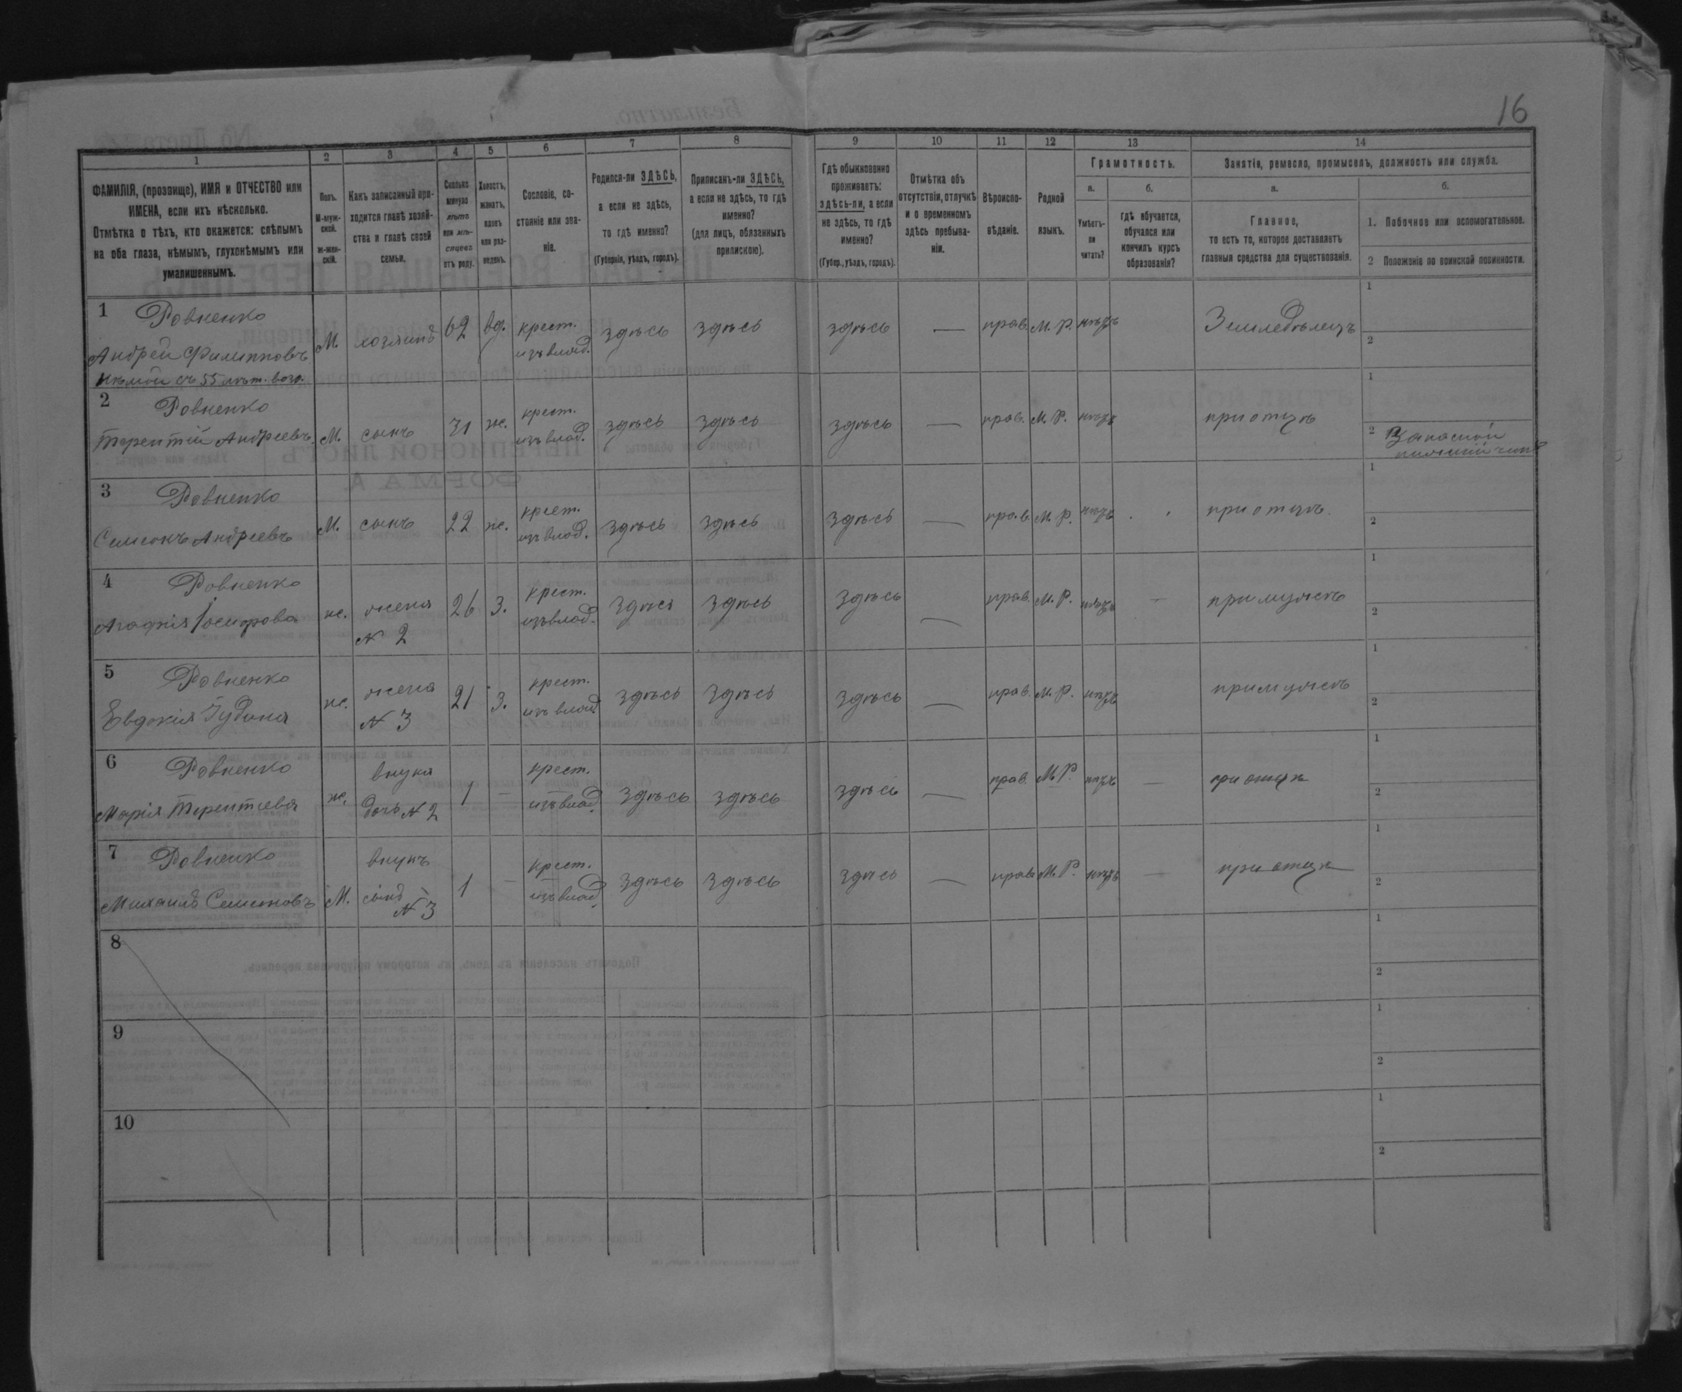 16
1 2 3 4 5 6 7 8 9 10 11 12 13 14
ФАМИЛІЯ, (прозвище), ИМЯ и ОТЧЕСТВО или ИМЕНА, если ихъ нѣсколько.
Отмѣтка о тѣхъ, кто окажется: слѣпымъ на оба глаза, нѣмымъ, глухонѣмымъ или умалишеннымъ.
Полъ.
М-мужской.
ж-женскій.
Какъ записанный приходится главѣ хозяйства и главѣ своей семьи.
Сколько минуло лѣтъ или мѣсяцевъ отъ роду.
Холостъ, женатъ, вдовъ или разведенъ.
Сословіе, состояніе или званіе.
Родился-ли ЗДѢСЬ, а если не здѣсь, то гдѣ именно?
(Губернія, уѣздъ, городъ).
Приписанъ-ли ЗДѢСЬ, а если не здѣсь, то гдѣ именно?
(для лицъ, обязанныхъ припискою).
Гдѣ обыкновенно проживаетъ: здѣсь-ли, а если не здѣсь, то гдѣ именно?
(Губер., уѣздъ, городъ).
Отмѣтка объ отсутствіи, отлучкѣ и о временномъ здѣсь пребываніи.
Вѣроисповѣданіе.
Родной языкъ.
Грамотность.
а.
Умѣетъ-ли читать?
б.
гдѣ обучается, обучался или кончилъ курсъ образованія?
Занятіе, ремесло, промыселъ, должность или служба.
а.
Главное,
то есть то, которое доставляетъ главныя средства для существованія.
б.
1. Побочное или вспомогательное.
2 Положеніе по воинской повинности.
1 Ровненко
Андрей Филипповъ М. хозяинъ 62 вд. крест. изъ влад. здѣсь здѣсь здѣсь — прав. М. Р. нѣтъ Земледѣлецъ
Нѣмой съ 55 лѣт. воз.
2 Ровненко
Терентій Андреевъ М. сынъ 31 ж. крест. изъ влад. здѣсь здѣсь здѣсь — прав. М. Р. нѣтъ при отцѣ
2 Запасной нижній чинъ
3 Ровненко
Семенъ Андреевъ М. сынъ 22 ж. крест. изъ влад. здѣсь здѣсь здѣсь — прав. М. Р. нѣтъ при отцѣ
4 Ровненко
Агафія Іосифова ж. жена № 2 26 З. крест. изъ влад. здѣсь здѣсь здѣсь — прав. М. Р. нѣтъ — при мужѣ
5 Ровненко
Евдокія Іудина ж. жена № 3 21 З. крест. изъ влад. здѣсь здѣсь здѣсь — прав. М. Р. нѣтъ при мужѣ
6 Ровненко
Марія Терентіева ж. внука дочь № 2 1 — крест. изъ влад. здѣсь здѣсь здѣсь — прав. М. Р. нѣтъ — при отцѣ
7 Ровненко
Михаилъ Семеновъ М. внукъ сынъ № 3 1 — крест. изъ влад. здѣсь здѣсь здѣсь — прав. М. Р. нѣтъ — при отцѣ
8
9
10